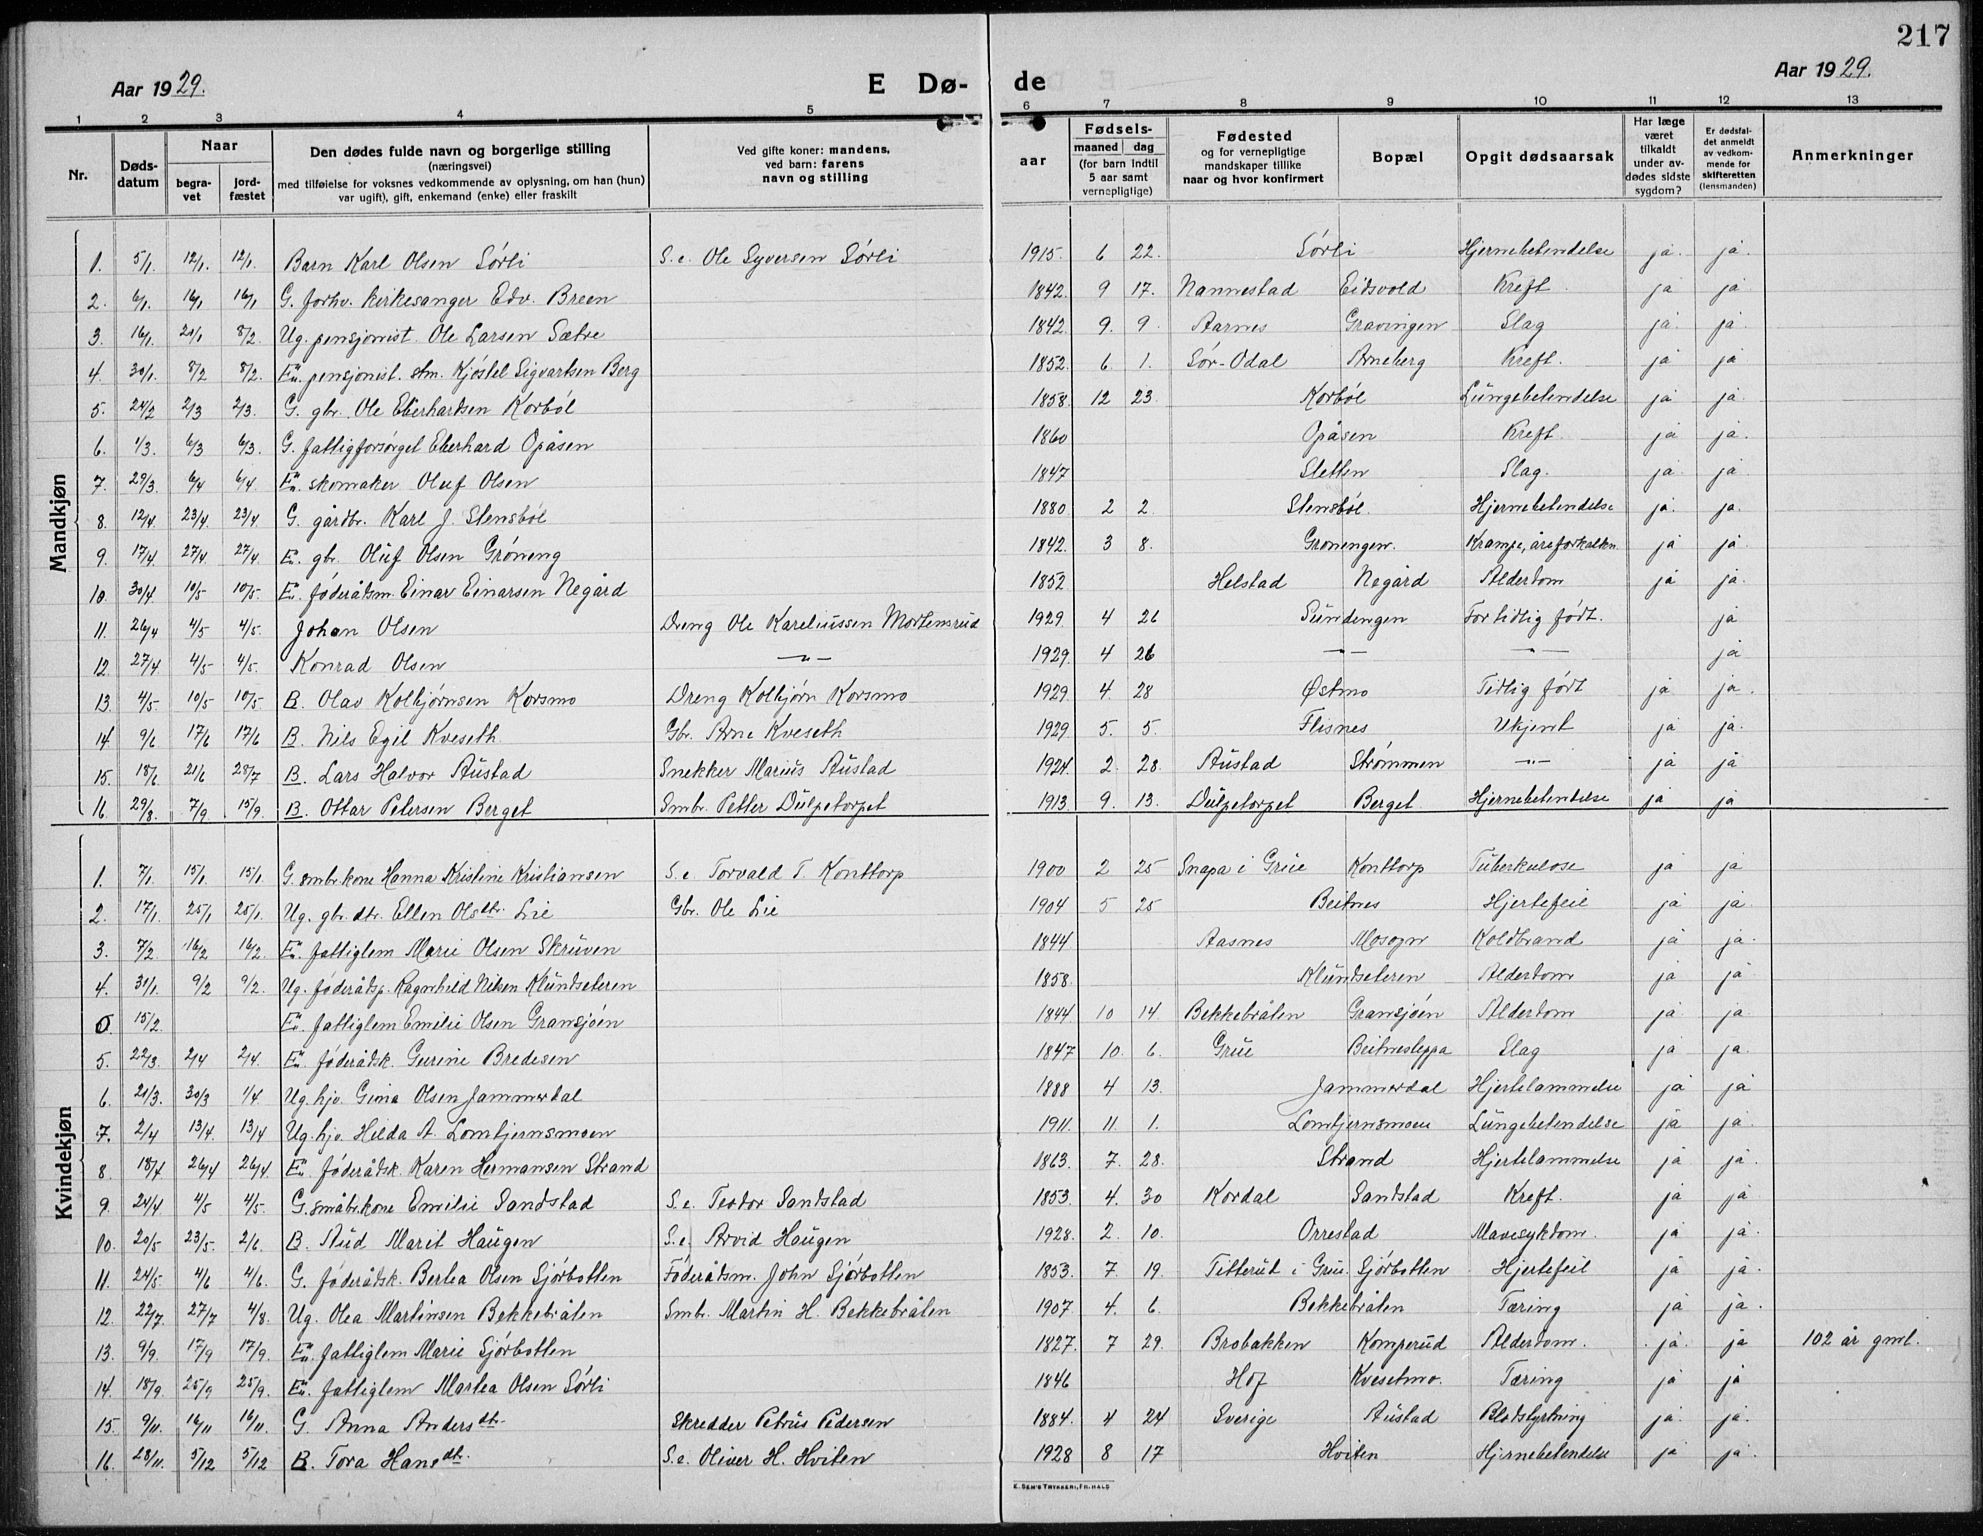 217
Aar 1929. E Dø- de Aar 1929.
1 2 3 4 5 6 7 8 9 10 11 12 13
Nr.
Døds-
datum
Naar
begra-
vet
jord-
fæstet
Den dødes fulde navn og borgerlige stilling
(næringsvei)
med tilføielse for voksnes vedkommende av oplysning, om han (hun)
var ugift), gift, enkemand (enke) eller fraskilt
Ved gifte koner: mandens,
ved barn: farens
navn og stilling
aar
Fødsels-
maaned dag
(for barn indtil
5 aar samt
vernepligtige)
Fødested
og for vernepligtige
mandskaper tillike
naar og hvor konfirmert
Bopæl
Opgit dødsaarsak
Har læge
været
tilkaldt
under av-
dødes sidste
sygdom?
Er dødsfal-
det anmeldt
av vedkom-
mende for
skifteretten
(lensmanden)
Anmerkninger
Mandkjøn
1. 5/1. 12/1. 12/1. Barn Karl Olsen Sörli S.e. Ole Syversen Sörli 1915. 6 22. Sörli Hjernebetendelse ja. ja.
2. 6/1. 16/1 16/1 G. forhv. kirkesanger Edv. Breen 1842. 9 17. Nannestad Eidsvold Kreft. ja ja
3. 16/1. 21/1 8/2. Ug. pensjonist Ole Larsen Sætre 1842. 9. 9. Aarnes Gravingen Slag ja ja
4. 30/1. 8/2 8/2. Em. pensjonist. stm. Kjöstel Sigvartsen Berg 1852. 6. 1. Sör-Odal Arneberg Kreft. ja ja
5. 24/2 2/3 2/3. G. gbr. Ole Eberhardsen Korböl 1858. 12 23 Korböl Lungebetendelse ja ja.
6. 1/3. 6/3 6/3. G. fattigforsörget Eberhard Opåsen 1860 Opåsen Kreft. ja ja.
7. 29/3. 6/4 6/4. Em. skomaker Oluf Olsen 1847 Sletten Slag. ja. ja
8. 12/4. 23/4. 23/4 G. gårdbr. Karl J. Stensböl 1880 2 2 Stensböl. Hjernebetendelse ja. ja.
9. 17/4. 27/4 27/4. Em. gbr. Oluf Olsen Gröneng 1842. 3 8. Gronengen. Krampe, åreforkalkn. ja ja.
10. 30/4. 10/5 10/5. Em. föderådsm. Einar Einarsen Negård 1852 Helstad Negård Alderdom ja ja.
11. 26/4 4/5 4/5. Johan Olsen Dreng Ole Kareliussen Mortensrud 1929 4 26 Sundengen For tidlig födt. ja
12. 27/4 4/5 4/5. Konrad Olsen —"— 1929. 4 26 —"— —"— ja
13. 4/5. 10/5 10/5. B. Olav Kolbjørnsen Korsmo Dreng Kolbjørn Korsmo 1929 4. 28 Østmo Tidlig födt ja ja.
14 9/6 17/6 17/6 B. Nils Egil Kveseth Gbr. Arne Kveseth 1929 5. 5. Flisnes Ukjent ja ja.
15. 18/6 21/6 28/7 B. Lars Halvor Austad Snekker Marius Austad 1924. 2. 28. Austad Strömmen —"— ja ja
16. 29/8. 7/9 15/9. B. Ottar Petersen Berget Smbr. Petter Dulpetorpet 1913. 9. 13. Dulpetorpet Berget. Hjernebetendelse ja ja
Kvindekjøn
1. 7/1. 15/1. 15/1. G. smbr. kone Hanna Kristine Kristiansen S.e Torvald T. Konttorp 1900 2 25 Snapa i Grue Konttorp Tuberkulose ja ja
2. 17/1. 25/1 25/1. Ug. gbr. dtr. Ellen Olsdtr. Lie Gbr. Ole Lie 1904 5 25 Beitnes Hjertefeil ja ja.
3. 7/2. 16/2 16/2. Em. fattiglem Marie Olsen Skruven 1844 Aasnes Mosogn Koldbrand ja ja.
4. 31/1. 9/2 9/2. Ug. föderådsp. Ragnhild Nilsen Klundseteren 1858. Klundseteren Alderdom ja ja
0. 15/2. Em. fattiglem Emilie Olsen Gransjöen 1844 10 14 Bekkebråten Gransjöen Alderdom ja ja.
5. 22/3. 2/4 2/4. Em. föderådsk. Gurine Bredesen 1847 10. 6. Grue Beitnesleppa Slag ja ja.
6. 21/3. 30/3 1/4. Ug. hjv. Gina Olsen Jammerdal 1888 4 13. Jammerdal Hjertelammelse ja ja
7. 2/4 13/4. 13/4 Ug. hjv. Hilda A. Lomtjernsmoen 1911. 11 1. Lomtjernsmoen Lungebetendelse ja ja.
8. 18/4 26/4 26/4. Em. föderådsk. Karen Hermansen Strand 1863. 7. 28. Strand Hjertelammelse ja ja.
9. 24/4 4/5 4/5. G. småbr. kone Emilie Sandstad S.e. Teodor Sandstad 1853. 4. 30 Kordal Sandstad Kreft. ja ja
10. 20/5 23/5. 2/6. B. Aud Marit Haugen S.e. Arvid Haugen 1928. 2. 10. Orrestad Mavesykdom. ja ja.
11. 24/5 4/6 4/6. G. föderådsk. Bertea Olsen Sjörbotten Föderådsm. John Sjörbotten 1853. 7. 19. Titterud i Grue. Sjörbotten Hjertefeil ja ja.
12. 22/7 27/7 4/8. Ug. Olea Martinsen Bekkebråten Smbr. Martin H. Bekkebråten 1907. 4. 6. Bekkebråten Tæring ja ja.
13. 9/9. 17/9 17/9. Em. fattiglem Marie Sjörbotten 1827. 7 29. Brobakken Komperud Alderdom. ja ja 102 år gml.
14. 18/9. 25/9 25/9. Em. fattiglem Martea Olsen Sörli 1846 Hof Kvesetmo. Tæring ja ja
15. 9/11. 16/11 16/11. G. Anna Andersdtr. Skredder Petrus Pedersen 1884. 4 24 Sverige Austad Blodstyrtning ja. ja.
16. 28/11. 5/12 5/12 B. Tora Hansdtr. S.e. Oliver H. Hviten 1928 8 17 Hviten Hjernebetendelse ja ja.
E. SEM'S TRYKKERI, FR.HALD